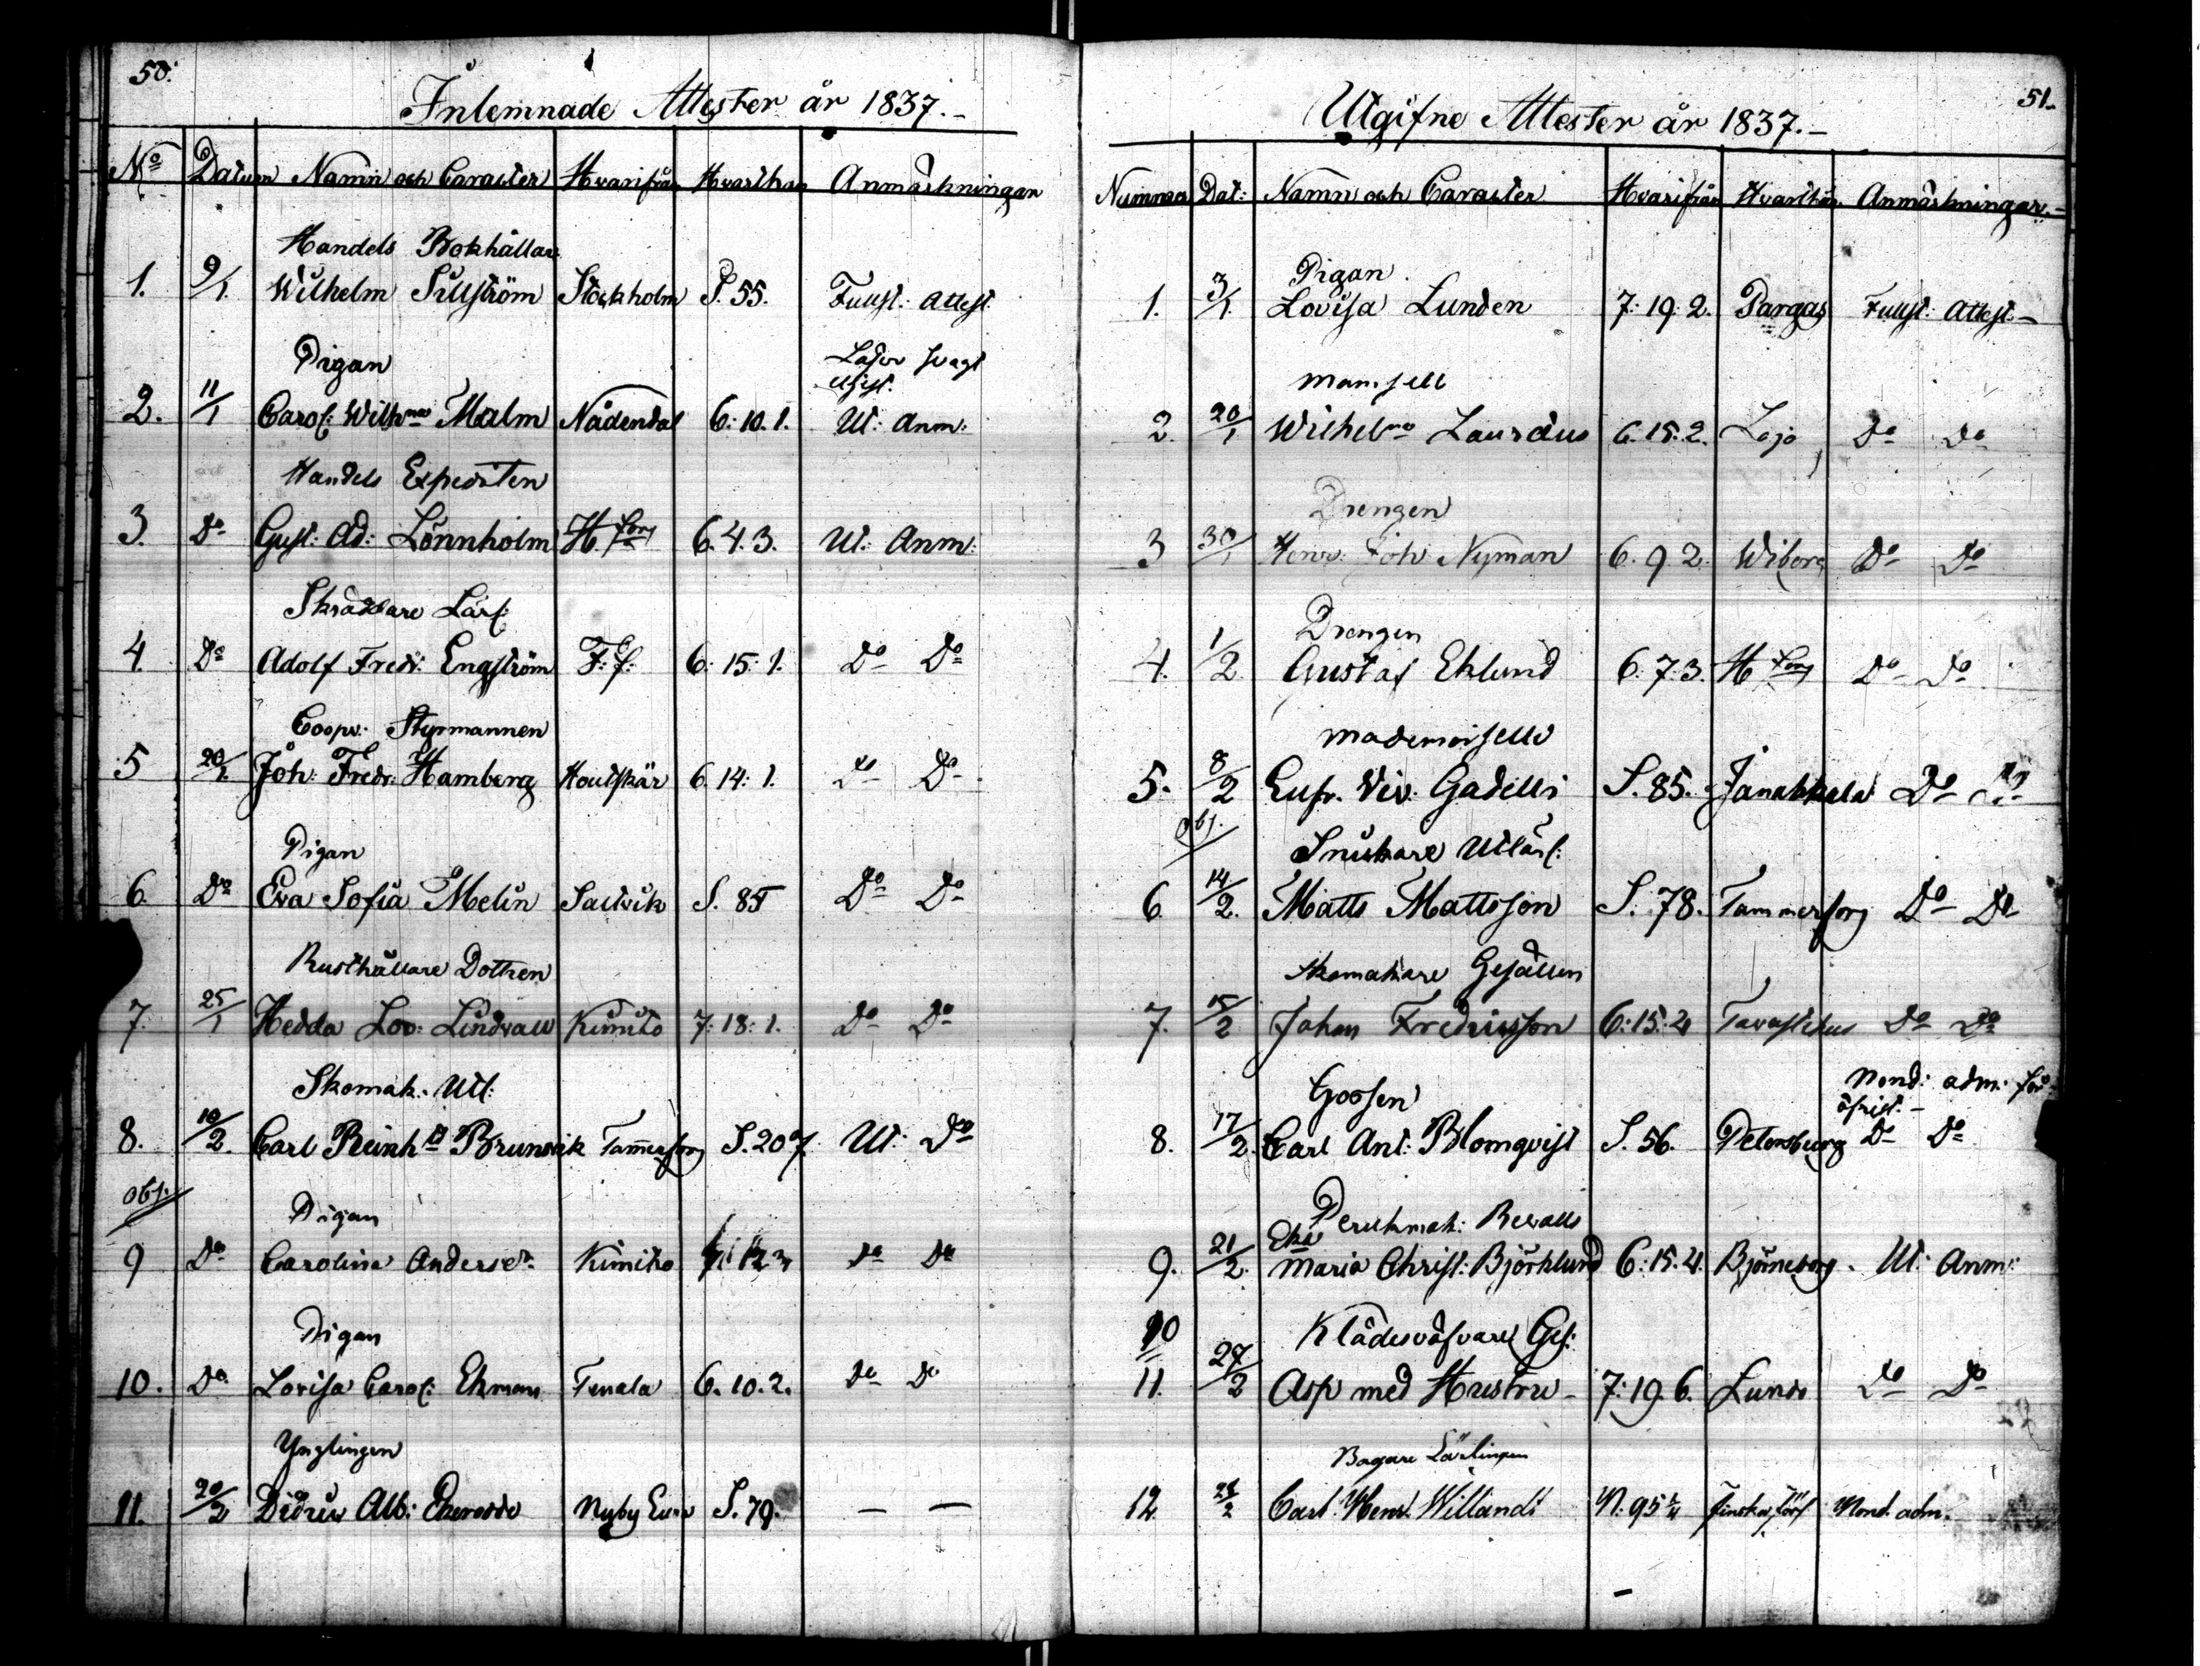 50.
Inlemnade Attester år 1837.-
No Datum Namn och Caracter Hvarifrån Hvarthän Anmärkningar
Handels Bokhållar.
1. 9/1. Wilhelm Sillström Stockholm S. 55. Fullst: attest.
Pigan
2. 11/1 Carol: Wilhna Malm Nådendal 6: 10. 1. Ut: Anm:
Handels Expediten
3. Do Gust: Ad: Lönnholm H.fors 6. 4. 3. Ut: Anm:
Skräddare Lärl:
4. Do Adolf Fredr: Engström F: f: 6: 15: 1. Do Do
Coopv: Styrmannen
5 20/1. Joh: Fredr: Hamberg Houtskär 6. 14: 1. Do Do
Pigan
6. Do Eva Sofia Melin Sastvik S. 85 Do Do
Rusthållare Dottren
7. 25/1 Hedda Lov: Lindvall Kimito 7: 18: 1. Do Do
Skomak. Utl:
8. 10/2. Carl Reinhd Brunvik Tammerfors S. 207 Ut: Do
obs:
Pigan
9 Do Carolina Andersdr. Kimito Do Do
Pigan
10. Do Lovisa Carol: Ekman Tenala 6. 10. 2. Do Do
Ynglingen
11. 20/2 Didrik Alb: Nyby S. 79. — —
51.
Utgifne Attester år 1837.-
Nummer Dat: Namn och Caracter Hvarifrån Hvarthän. Anmärkningar.-
Pigan
1. 3/1. Lovisa Lunden 7: 19: 2. Pargas Fullst: Attest-
Mamsell
2. 20/1 Wilhelma Laurdus 6. 15. 2. Lojo Do Do
Drengen
3 30/1 Henr: Joh Nyman 6. 9 2. Wiborg Do Do
Drengen
4. 1/2 Gustaf Eklund 6. 7. 3. H.fors Do Do
Mademoiselle
5. 8/2 Eufr. Viv: Gadelli S. 85. Janakkala Do Do
obs.
Snickare Utlärl:
6. 14/2. Matts Mattsson S. 78. Tammerfors Do Do
Skomakare Gesällen
7. 15/2 Johan Fredriksson 6: 15: 4 Tavastehus Do Do
Gossen Nond: adm: för
öfrigt.-
8. 17/2. Carl Ant: Blomqvist S. 56. Petersburg Do Do
Perukmak: Rewalls
Eka
9. 21/2. Maria Christ: Björklund 6: 15. 4. Björneborg. Ut: Anm:
10 Klädesväfvare Ges:
11. 27/2 Asp med Hustru- 7: 19. 6. Lundo Do Do
Bagare Lärlingen
12. 28/2 Carl Henr. Willandt N. 95 1/4 Finska förs Nond. adm.